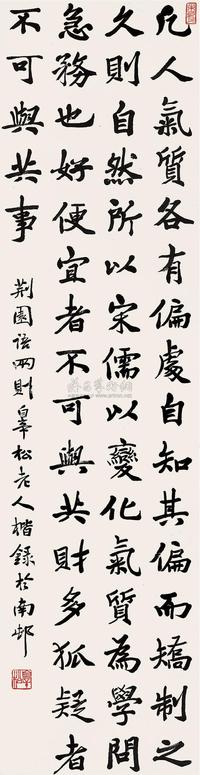 凡人氣質各有偏處自知其偏而矯制之
久則自然所以宋儒以變化氣質為學問
急務也好便宜者不可與共財多狐疑者
不可與共事
荆園語兩則皋松老人楷錄於南邨